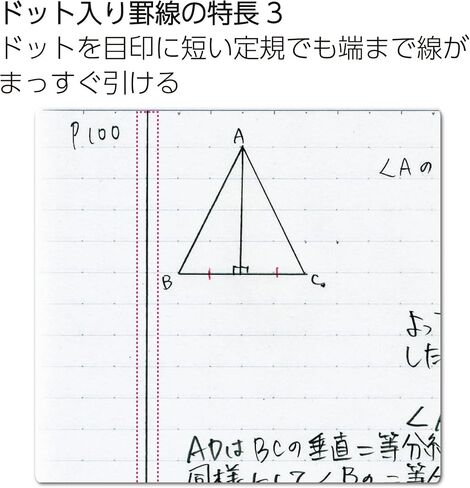 ドット入り罫線の特長3
ドットを目印に短い定規でも端まで線が
まっすぐ引ける
P.100
A
∠Aの
B
C
よっ
した
∠
ADはBCの垂直二等分
同様にして∠Bの二等分